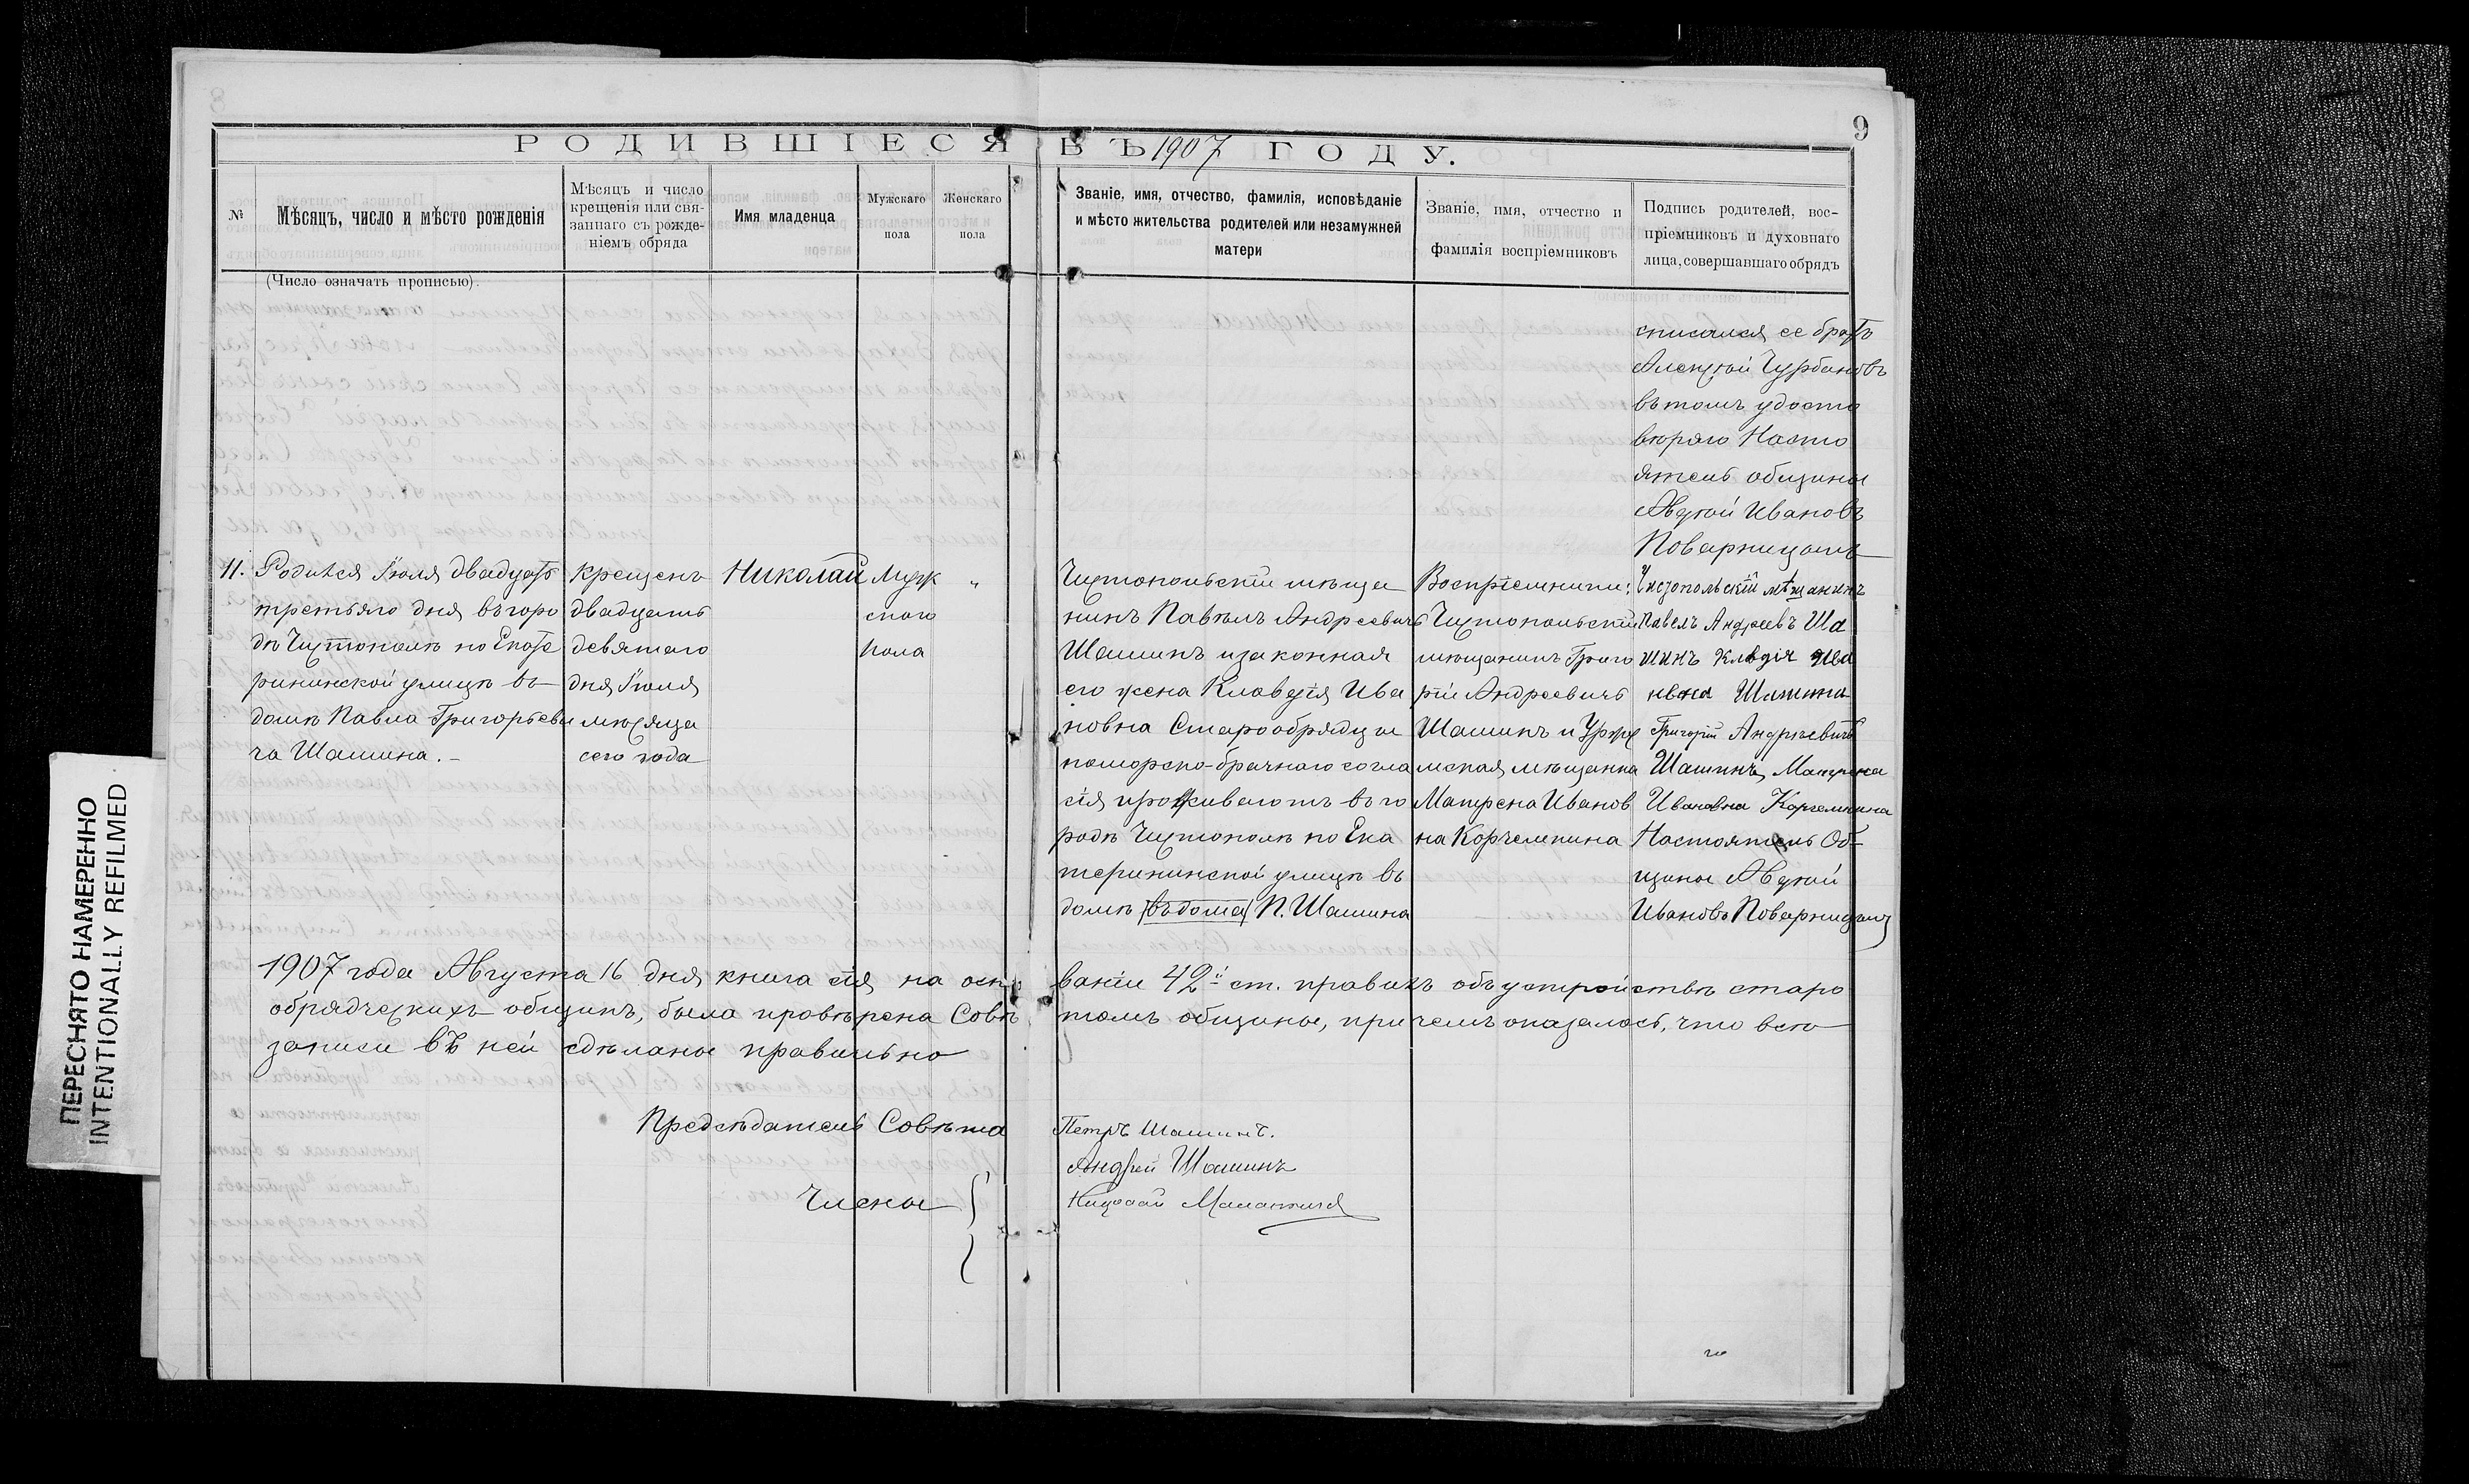 9
РОДИВШІЕСЯ ВЪ 1907 ГОДУ.
№
Мѣсяцъ, число и мѣсто рожденія
Мѣсяцъ и число
крещенія или свя-
заннаго съ рожде-
ніемъ обряда
Имя младенца
Мужскаго
пола
Женскаго
пола
Званіе, имя, отчество, фамилія, исповѣданіе
и мѣсто жительства родителей или незамужней
матери
Званіе, имя, отчество и
фамилія воспріемниковъ
Подпись родителей, вос-
пріемниковъ и духовнаго
лица, совершавшаго обрядъ
(Число означать прописью).
списался ее братъ
Алексѣй Чурбановъ
въ томъ удосто
вѣряю Насто
ятель общины
Авдѣй Ивановъ
Поварницынъ
11.
Родился Іюля двадцать
третьяго дня въ горо
дѣ Чистополѣ по Екате
рининской улицѣ въ
домѣ Павла Григорьеви
ча Шашина.-
Крещенъ
двадцать
девятаго
дня Іюля
мѣсяца
сего года
Николай
Муж
ского
пола
"
Чистопольскій мѣща
нинъ Павѣлъ Андреевичъ
Шашинъ и законная
его жена Клавдія Ива
новна Старообрядцы
поморско-брачнаго согла
сія проживаютъ въ го
родѣ Чистополѣ по Ека
терининской улицѣ въ
домѣ (въ дома) П. Шашина
Воспріемники:
Чистопольскій
мѣщанинъ Григо
рій Андреевичъ
Шашинъ и Уржу
мская мѣщанка
Матрена Иванов
на Корчемкина
Чистопольскій мѣщанинъ
Павелъ Андреевъ Ша
шинъ Клвдія Ива
нвна Шашина
Григорій Андрѣевичъ
Шашинъ, Матрена
Ивановна Корчемкина
Настоятель Об-
щины Авдѣй
Ивановъ Поварницынъ
1907 года Августа 16 дня книга сія на осно ваніи 42й ст. правилъ объ устройствѣ старо
обрядческихъ общинъ, была провѣрена Совѣ томъ общины, при чемъ оказалось, что всѣ
записи въ ней сдѣланы правильно
Предсѣдатель Совѣта Петръ Шашинъ.
Андрей Шашинъ
Члены
Николай
ПЕРЕСНЯТО НАМЕРЕННО
INTENTIONALLY REFILMED